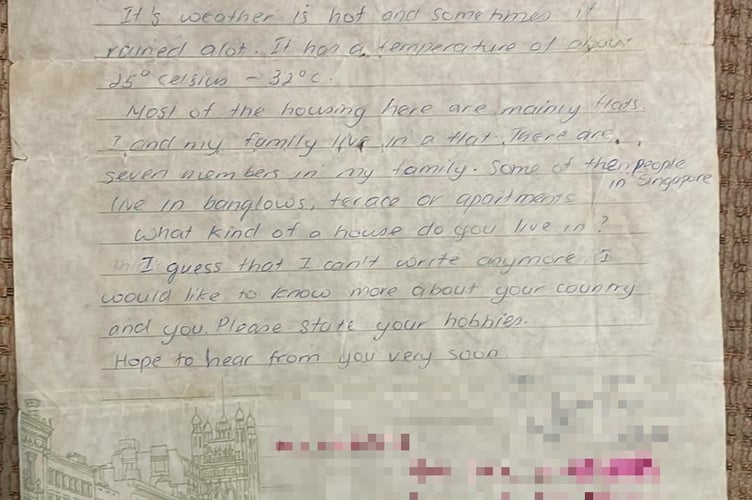 It's weather is hot and sometimes it
rained alot. It has a temperature of about
25° celsius - 32°c.
Most of the housing here are mainly flats.
I and my family live in a flat. There are
seven members in my family. Some of the people
in Singapore
live in banglows, terace or apartments
What kind of a house do you live in?
I guess that I can't write anymore. I
would like to know more about your country
and you. Please state your hobbies.
Hope to hear from you very soon.